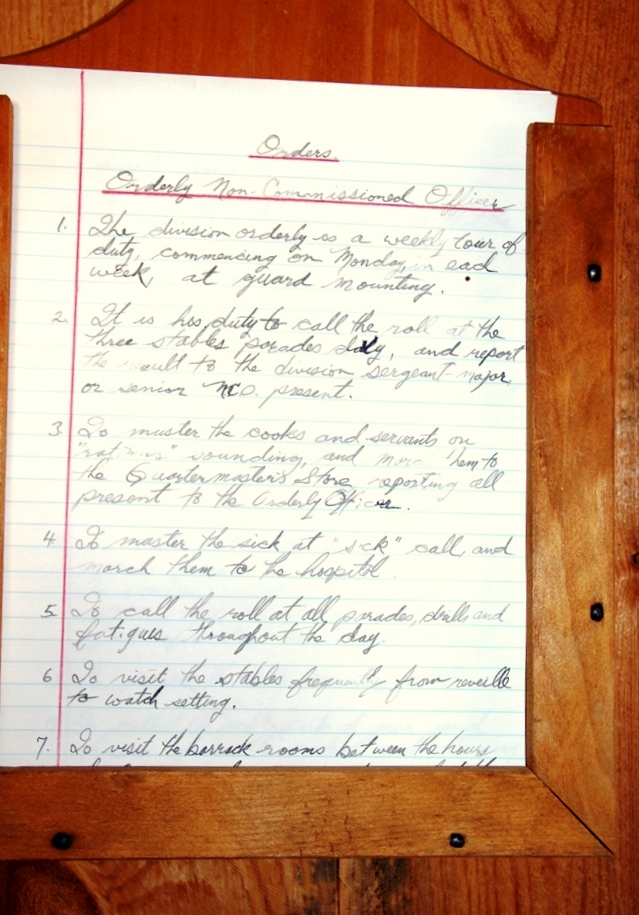 Orders.
Orderly Non-Commissioned Officer
1. The division orderly is a weekly tour of
duty, commencing on Monday, in each
week, at guard mounting.
2. It is his duty to call the roll at the
three stables parades daily, and report
the result to the division sergeant-major,
or senior N.C.O. present.
3. To muster the cooks and servants on
"rations" sounding, and march them to
the Quartermaster's Store, reporting all
present to the Orderly Officer.
4. To master the sick at "sick" call, and
march them to the hospital.
5. To call the roll at all parades, drills and
fatigues throughout the day.
6 To visit the stables frequently from reveille
to watch setting.
7. To visit the barrack rooms between the hours